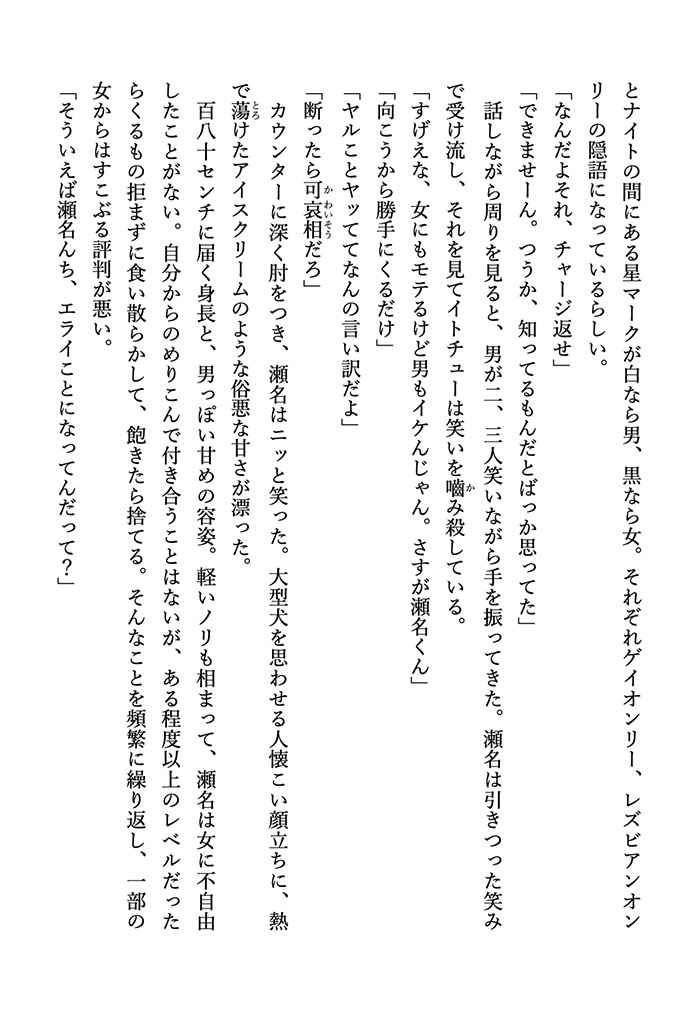 とナイトの間にある星マークが白なら男、黒なら女。それぞれゲイオンリー、レズビアンオン
リーの隠語になっているらしい。
「なんだよそれ、チャージ返せ」
「できませーん。つうか、知ってるもんだとばっか思ってた」
話しながら周りを見ると、男が二、三人笑いながら手を振ってきた。瀬名は引きつった笑み
で受け流し、それを見てイトチューは笑いを嚙み殺している。
「すげえな、女にもモテるけど男もイケんじゃん。さすが瀬名くん」
「向こうから勝手にくるだけ」
「ヤルことヤッててなんの言い訳だよ」
「断ったら可哀相だろ」
カウンターに深く肘をつき、瀬名はニッと笑った。大型犬を思わせる人懐こい顔立ちに、熱
で蕩けたアイスクリームのような俗悪な甘さが漂った。
百八十センチに届く身長と、男っぽい甘めの容姿。軽いノリも相まって、瀬名は女に不自由
したことがない。自分からのめりこんで付き合うことはないが、ある程度以上のレベルだった
らくるもの拒まずに食い散らかして、飽きたら捨てる。そんなことを頻繁に繰り返し、一部の
女からはすこぶる評判が悪い。
「そういえば瀬名んち、エライことになってんだって？」